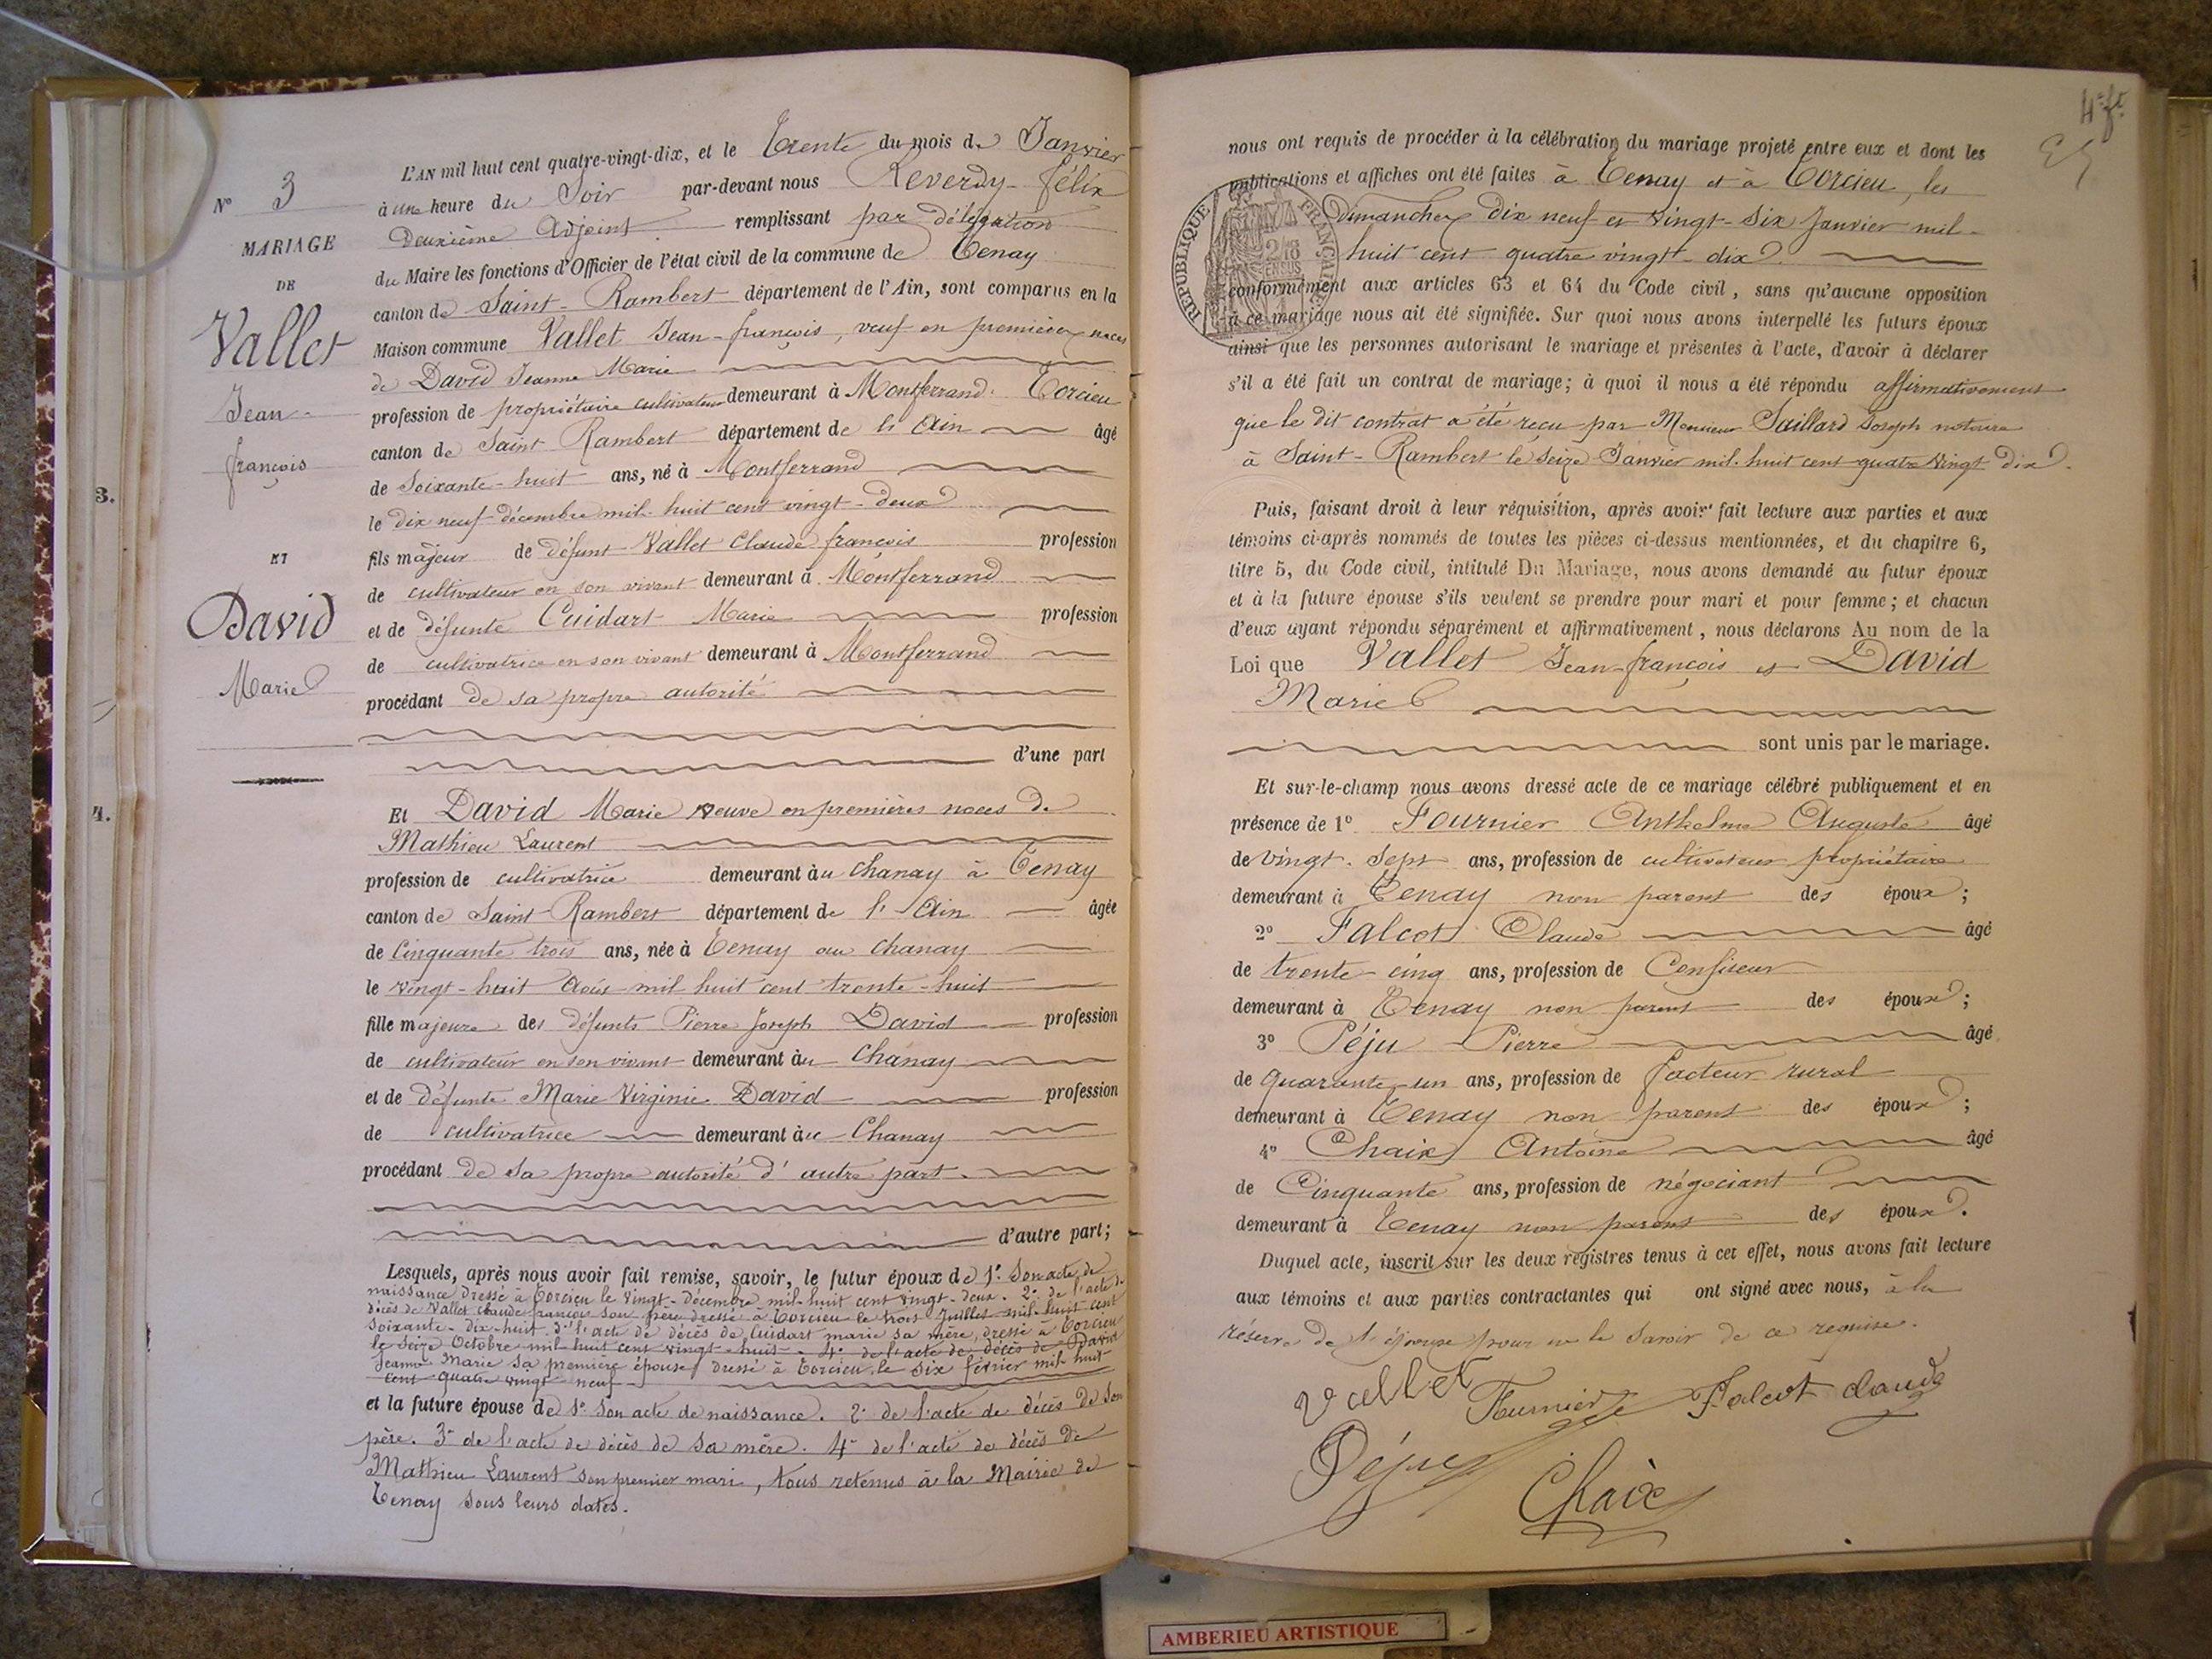 L'AN mil huit cent quatre-vingt-dix, et le Trente du mois de Janvier
N° 3
à une heure du Soir par-devant nous Reverdy Félix
MARIAGE
Deuxième Adjoint remplissant par délégation
du Maire les fonctions d'Officier de l'état civil de la commune de Tenay
DE
canton de Saint-Rambert département de l'Ain, sont comparus en la
Vallet
Maison commune Vallet Jean-françois, veuf en premières noces
de David Jeanne Marie
Jean-
profession de propriétaire cultivateur demeurant à Montferrand. Torcieu
canton de Saint Rambert département de l'Ain âgé
françois
de Soixante-huit ans, né à Montferrand
3.
le dix neuf décembre mil-huit cent vingt-deux
fils majeur de défunt Vallet Claude françois profession
ET
de cultivateur en son vivant demeurant à Montferrand
David
et de défunte Cuidart Marie profession
de cultivatrice en son vivant demeurant à Montferrand
Marie
procédant de sa propre autorité
d'une part
4.
Et David Marie veuve en premières noces de
Mathieu Laurent
profession de cultivatrice demeurant au Chanay à Tenay
canton de Saint-Rambert département de l'Ain âgée
de Cinquante trois ans, née à Tenay au Chanay
le vingt-huit Août mil huit cent trente-huit
fille majeure des défunts Pierre Joseph David profession
de cultivateur en son vivant demeurant au Chanay
et de défunte Marie Virginie David profession
de cultivatrice demeurant au Chanay
procédant de sa propre autorité d'autre part.
d'autre part;
Lesquels, après nous avoir fait remise, savoir, le futur époux de 1°. Son acte de
naissance dressé à Torcieu le vingt-décembre mil-huit cent vingt-deux. 2°. de l'acte de
décès de Vallet Claude françois son père dressé à Torcieu le trois Juillet mil-huit cent
soixante-dix-huit 3° l'acte de décès de Cuidart marie sa mère, dressé à Torcieu
le seize Octobre mil huit cent vingt-huit. 4° de l'acte de décès de David
Jeanne Marie sa première épouse, dressé à Torcieu le six février mil huit
cent quatre vingt neuf
et la future épouse de 1° Son acte de naissance. 2° de l'acte de décès de son
père. 3° de l'acte de décès de sa mère. 4° de l'acte de décès de
Mathieu Laurent son premier mari, tous retenus à la Mairie de
Tenay sous leurs dates.
4e ft
nous ont requis de procéder à la célébration du mariage projeté entre eux et dont les
publications et affiches ont été faites à Tenay et à Torcieu, les
dimanches dix neuf et vingt-six Janvier mil-
huit cent quatre vingt-dix.
REPUBLIQUE FRANÇAISE
conformément aux articles 63 et 64 du Code civil, sans qu'aucune opposition
à ce mariage nous ait été signifiée. Sur quoi nous avons interpellé les futurs époux
ainsi que les personnes autorisant le mariage et présentes à l'acte, d'avoir à déclarer
s'il a été fait un contrat de mariage; à quoi il nous a été répondu affirmativement
que le dit contrat a été reçu par Monsieur Saillard Joseph notaire
à Saint-Rambert le seize Janvier mil-huit cent quatre vingt dix.
Puis, faisant droit à leur réquisition, après avoir fait lecture aux parties et aux
témoins ci-après nommés de toutes les pièces ci-dessus mentionnées, et du chapitre 6,
titre 5, du Code civil, intitulé Du Mariage, nous avons demandé au futur époux
et à la future épouse s'ils veulent se prendre pour mari et pour femme; et chacun
d'eux ayant répondu séparément et affirmativement, nous déclarons Au nom de la
Loi que Vallet Jean-françois et David
Marie
sont unis par le mariage.
Et sur-le-champ nous avons dressé acte de ce mariage célébré publiquement et en
présence de 1° Fournier Anthelme Auguste âgé
de vingt-sept ans, profession de cultivateur propriétaire
demeurant à Tenay non parent des époux;
2° Falcot Claude âgé
de trente-cinq ans, profession de Confiseur
demeurant à Tenay non parent des époux;
3° Péju Pierre âgé
de quarante-un ans, profession de facteur rural
demeurant à Tenay non parent des époux;
4° Chaix Antoine âgé
de Cinquante ans, profession de négociant
demeurant à Tenay non parent des époux.
Duquel acte, inscrit sur les deux registres tenus à cet effet, nous avons fait lecture
aux témoins et aux parties contractantes qui ont signé avec nous, à la
réserve de l'épouse pour ne le savoir de ce requise.
vallet Fournier Falcot claude
Péju
Chaix
AMBERIEU ARTISTIQUE